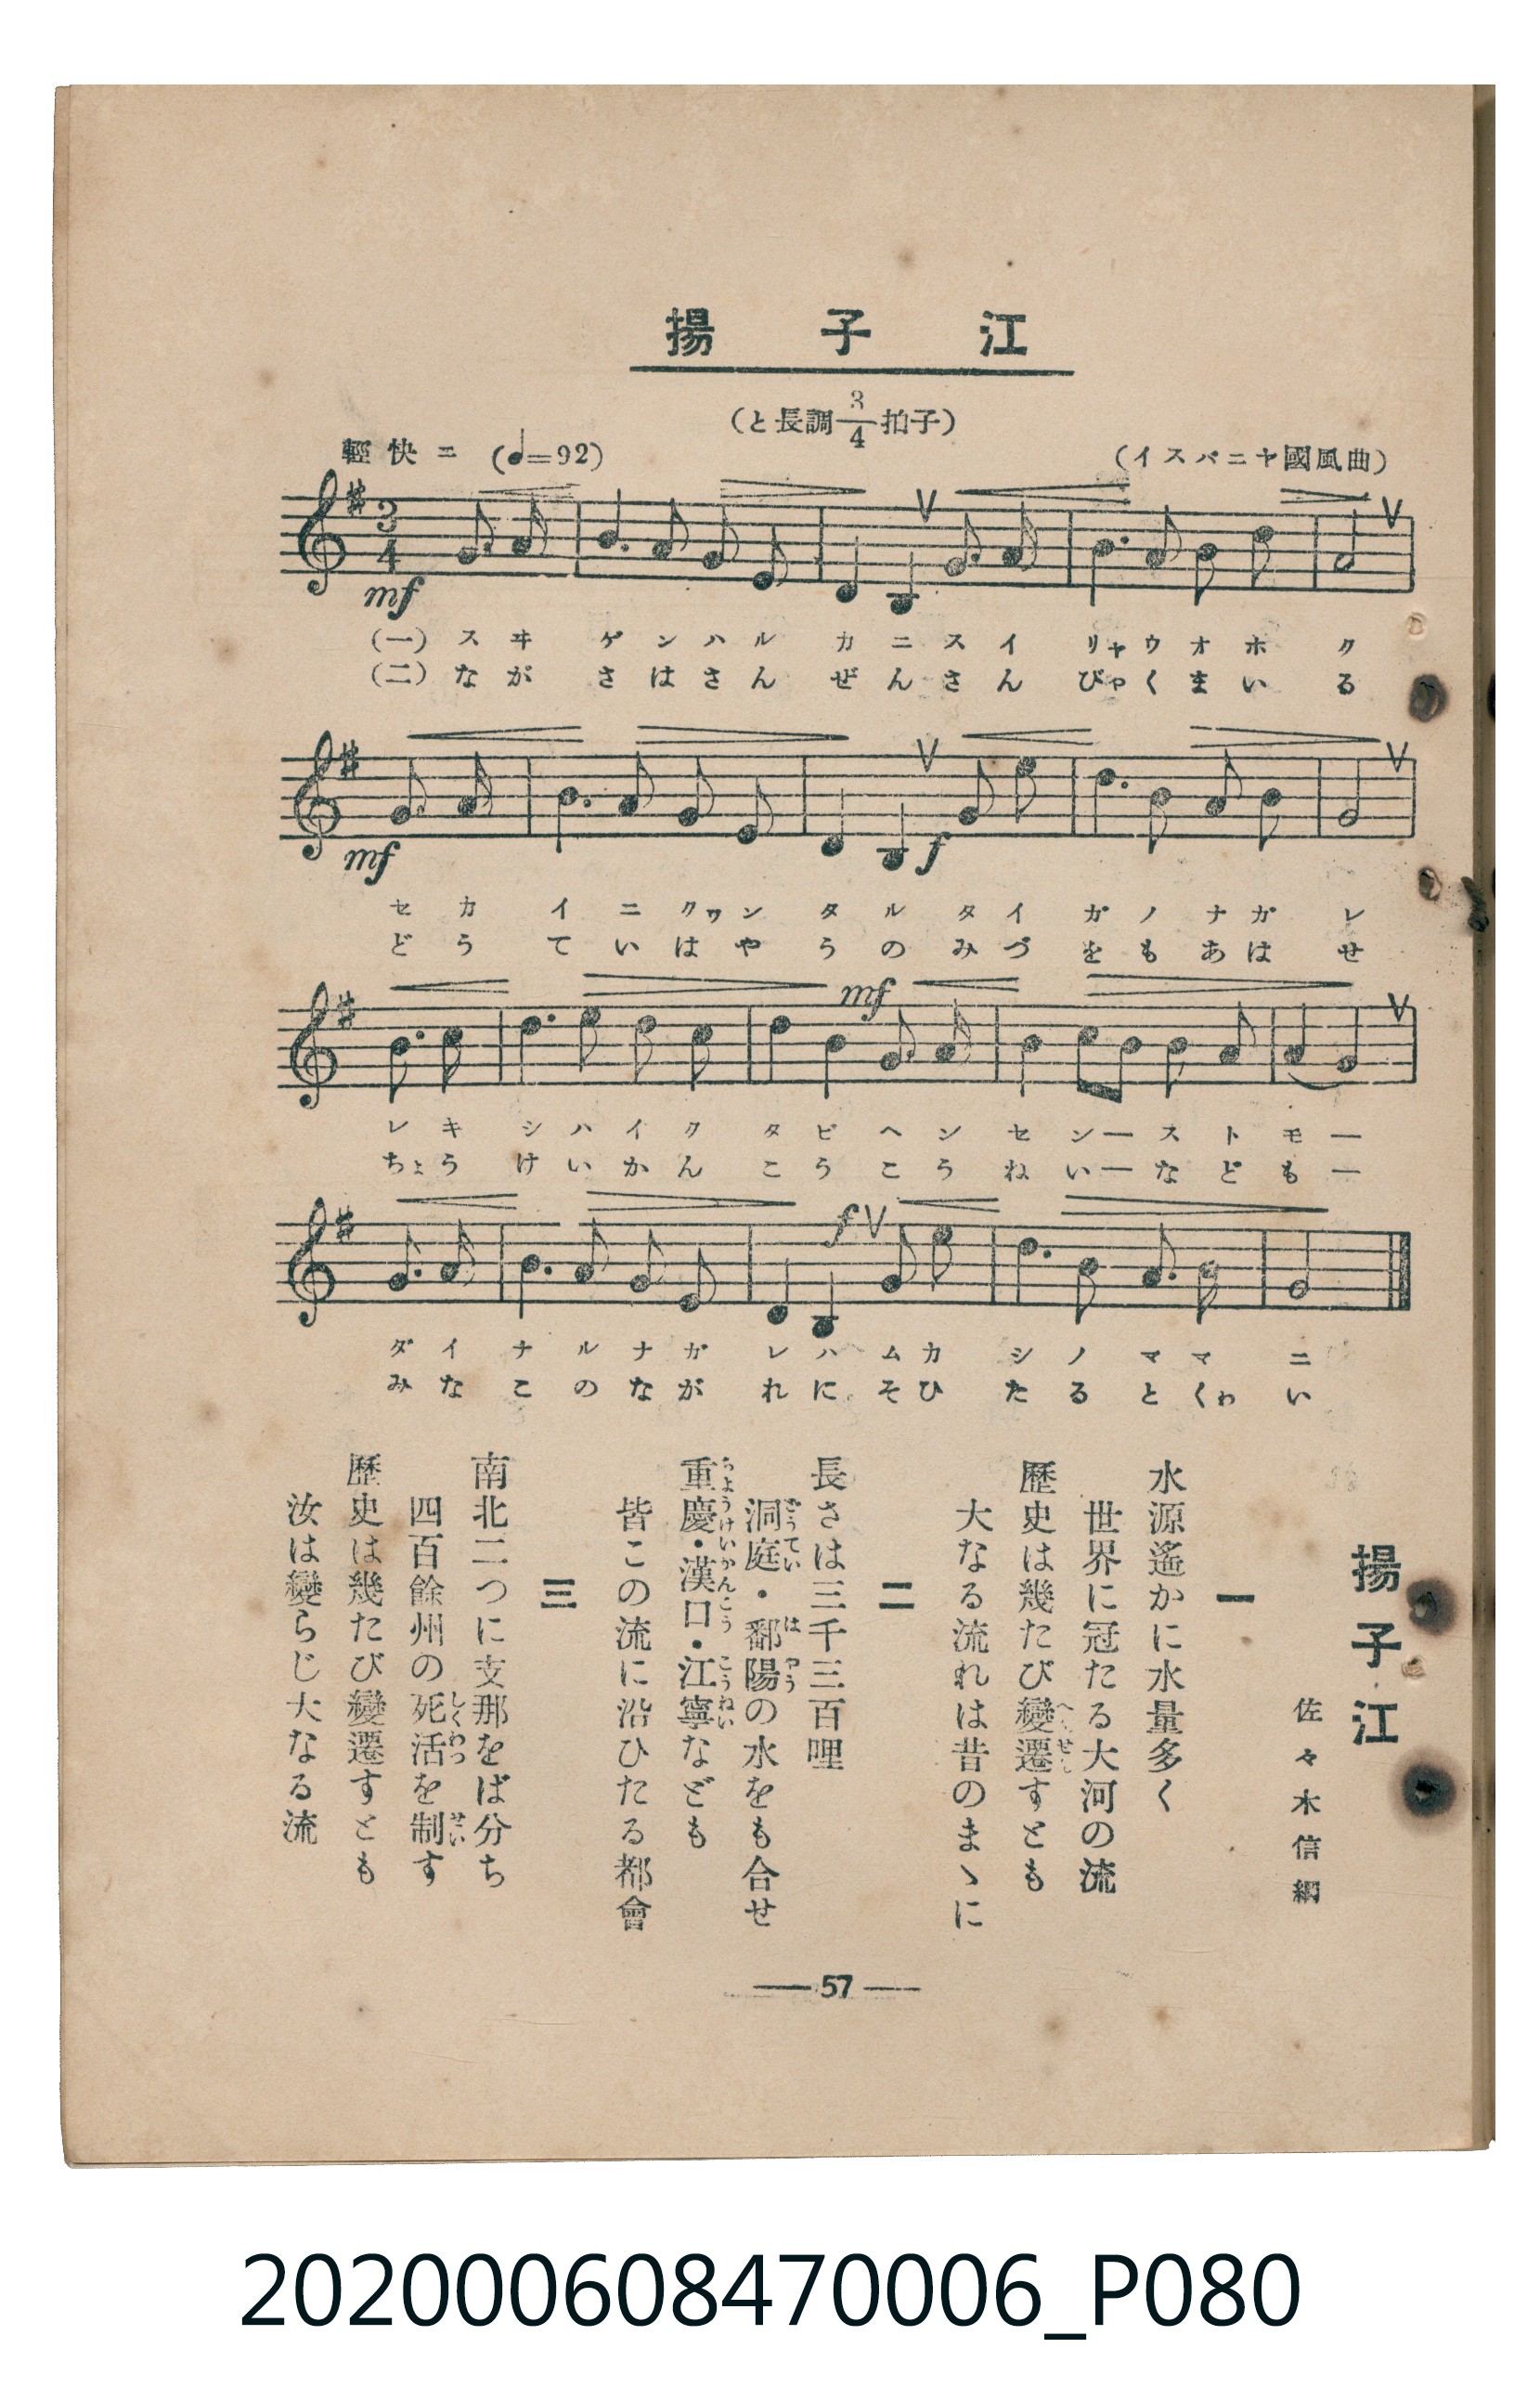 揚子江
(と長調3/4拍子)
輕快ニ (♩=92)
(イスパニヤ國風曲)
mf
(一)スヰ ゲンハル カニスイ リャウオホ ク
(二)なが さはさん ぜんさん びゃくまい る
mf f
セカ イニクヮン タルタイ ガノナガ レ
どう ていはや うのみづ をもあは せ
mf
レキ シハイク タビヘン セン―スト モ―
ちょう けいかん こうこう ねい―など も―
f
ダイ ナルナガ レハムカ シノママ ニ
みな このなが れにそひ たるとくわ い
揚子江
佐々木信綱
一
水源遙かに水量多く
世界に冠たる大河の流
歷史は幾たび變遷すとも
大なる流れは昔のまゝに
二
長さは三千三百哩
洞庭・鄱陽の水をも合せ
重慶・漢口・江寧なども
皆この流に沿ひたる都會
三
南北二つに支那をば分ち
四百餘州の死活を制す
歷史は幾たび變遷すとも
汝は變らじ大なる流
—57—
202000608470006_P080